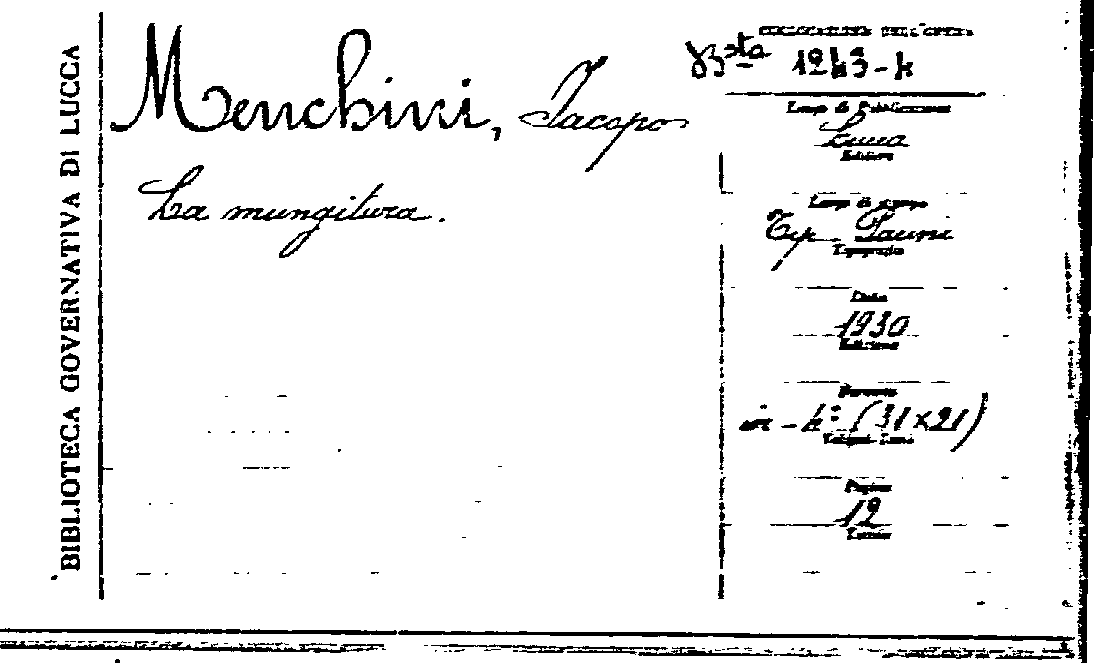 BIBLIOTECA GOVERNATIVA DI LUCCA
Menchini, Jacopo
La mungitura.
COLLOCAZIONE DELL'OPERA
Bsta 1243-4
Luogo di Pubblicazione
Lucca
Editore
Luogo di stampa
Tip. Pacini
Tipografo
Data
1930
Edizione
Formato
in-4° (31x21)
Pagine
12
Tavole